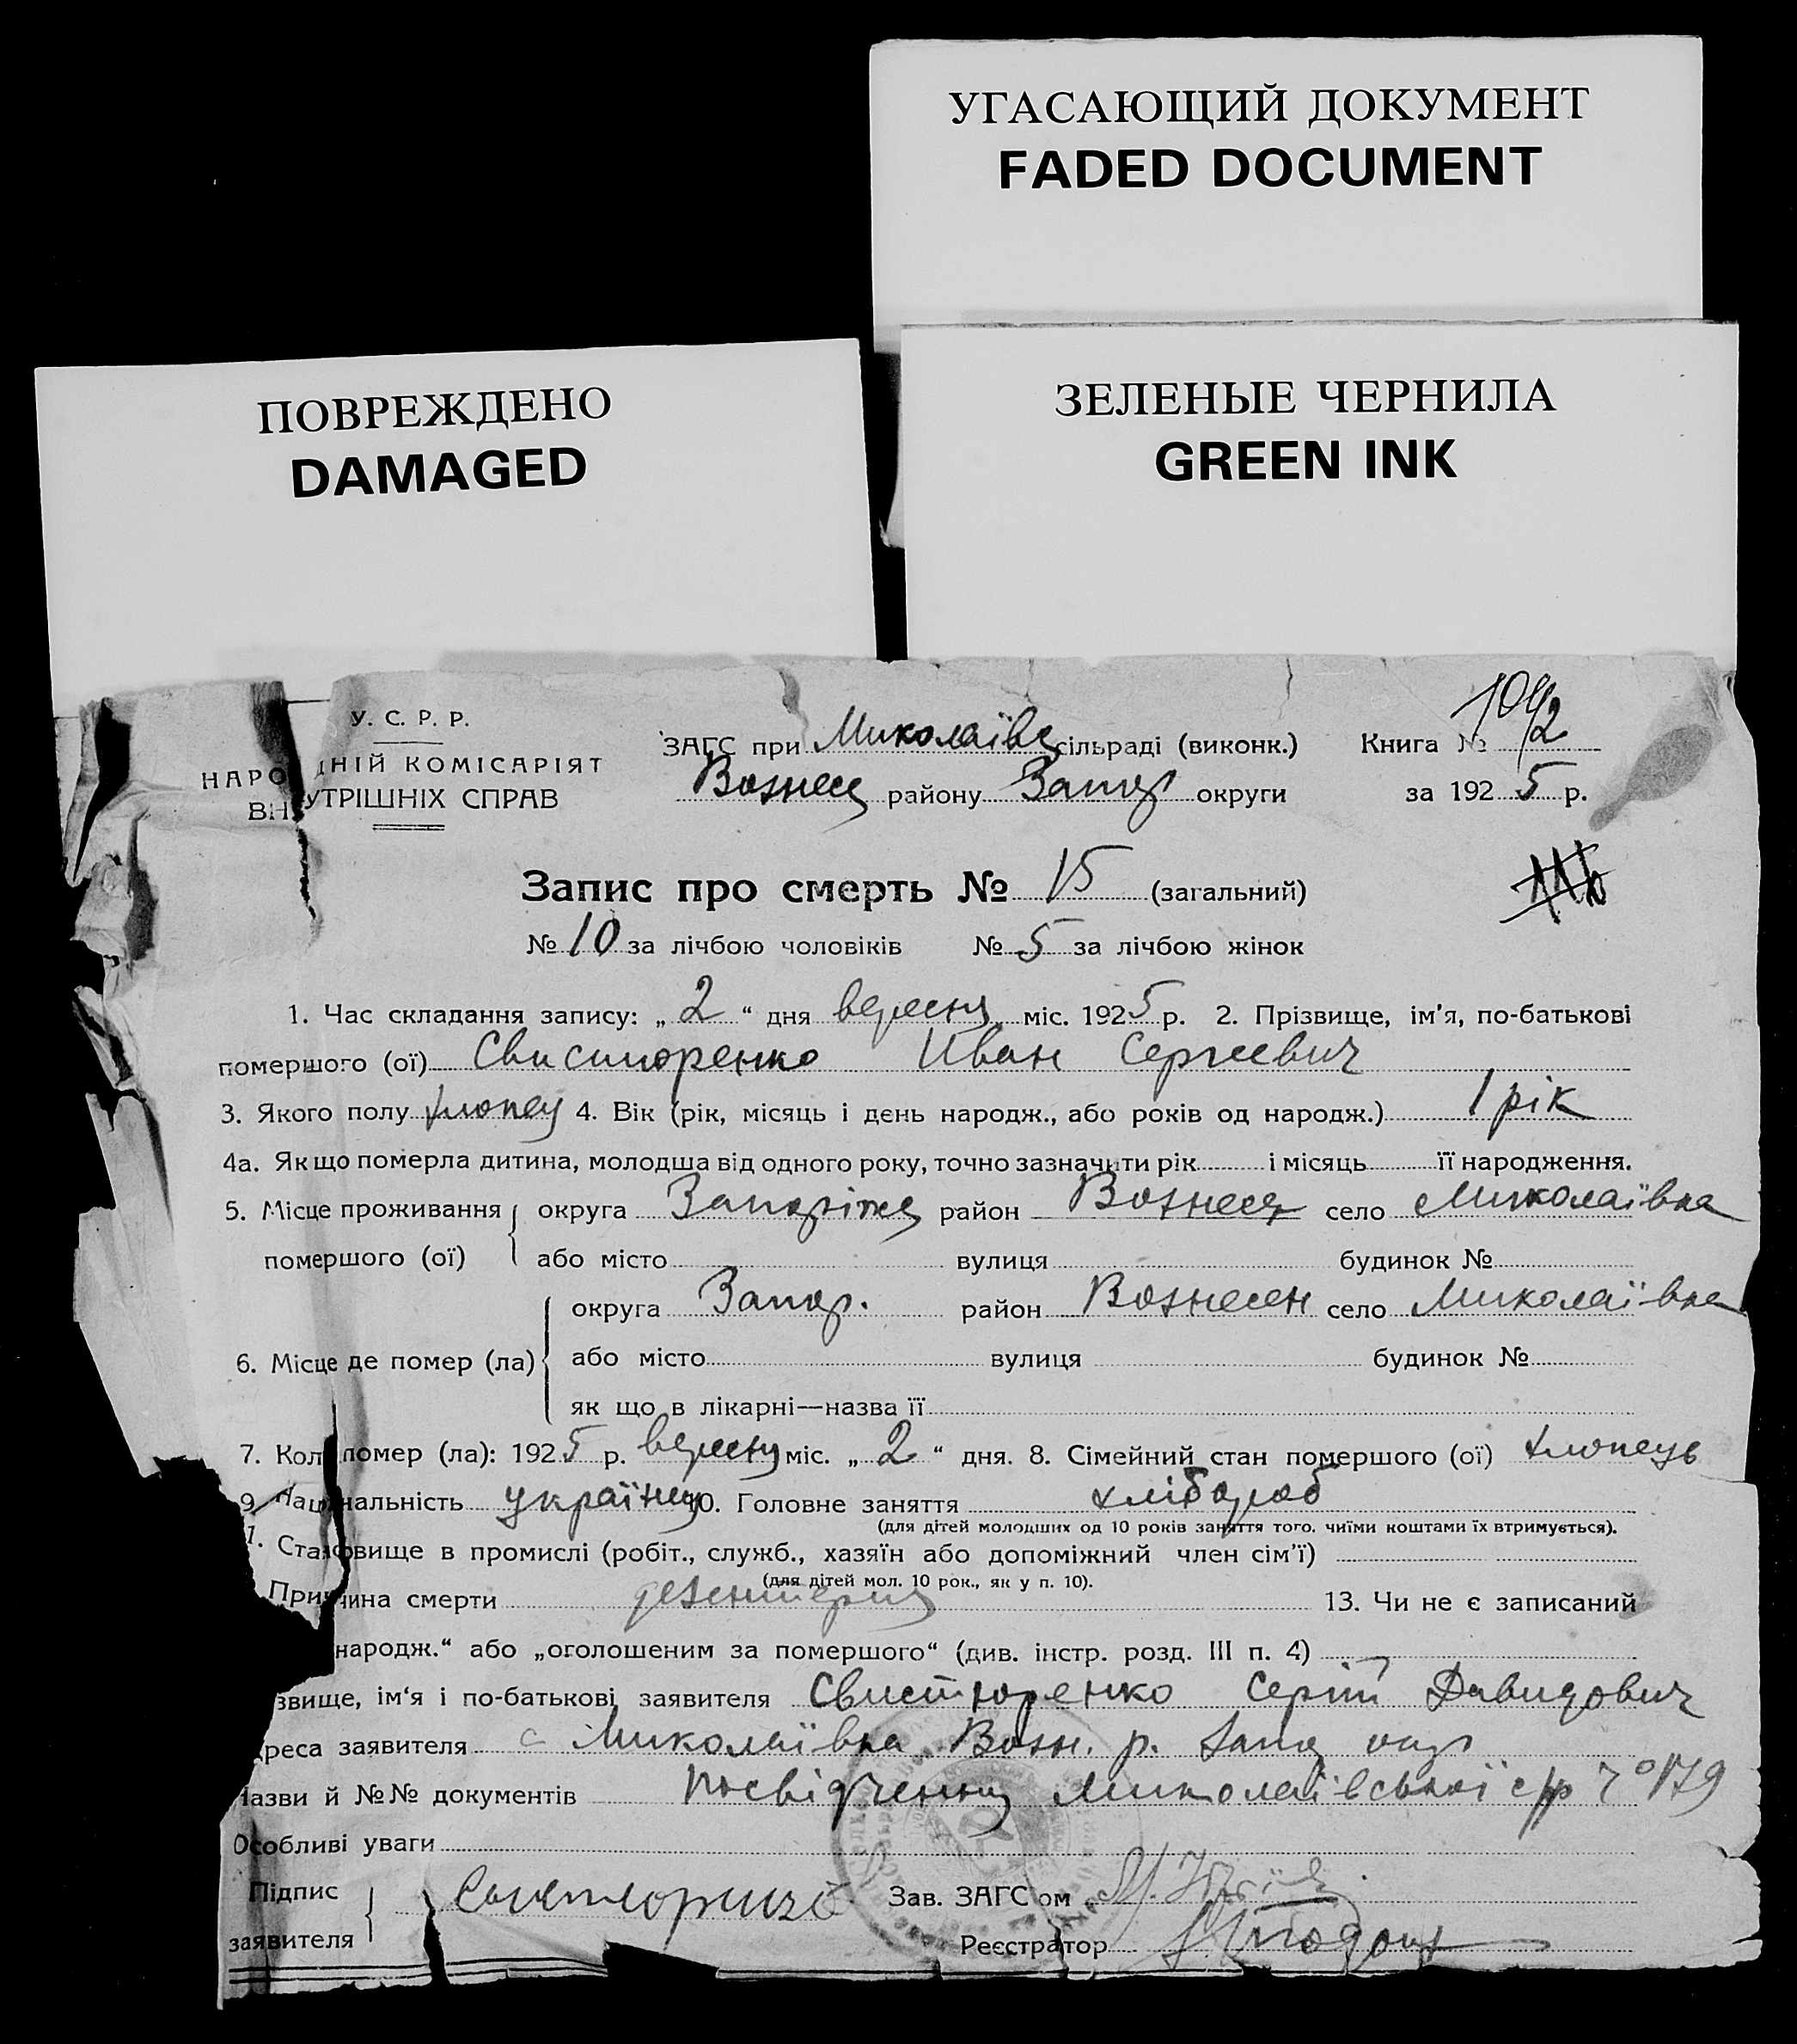 УГАСАЮЩИЙ ДОКУМЕНТ
FADED DOCUMENT
ПОВРЕЖДЕНО
DAMAGED
ЗЕЛЕНЫЕ ЧЕРНИЛА
GREEN INK
У. С. Р. Р.
НАРОДНІЙ КОМІСАРІЯТ
ВН УТРІШНІХ СПРАВ
ЗАГС при Миколаївс сільраді (виконк.) Книга №
Вознесе району Запор округи за 1925 р.
Запис про смерть № 15 (загальний)
№ 10 за лічбою чоловіків № 5 за лічбою жінок
1. Час складання запису: „2“ дня вересня міс. 1925 р. 2. Прізвище, ім'я, по-батькові
помершого (ої) Свистюренко Иван Сергеевич
3. Якого полу хлопец 4. Вік (рік, місяць і день народж., або років од народж.) 1 рік
4а. Якщо померла дитина, молодша від одного року, точно зазначити рік і місяць її народження.
5. Місце проживання помершого (ої) округа Запоріже район Вознесе село Миколаївка
або місто вулиця будинок №
6. Місце де помер (ла) округа Запор. район Вознесен село Миколаївка
або місто вулиця будинок №
як що в лікарні—назва її
7. Кол помер (ла): 1925 р. вересня міс. „2“ дня. 8. Сімейний стан помершого (ої) хлопець
9. Національність українец 10. Головне заняття хлібороб
(для дітей молодших од 10 років заняття того, чиїми коштами їх втримується).
1. Становище в промислі (робіт., служб., хазяїн або допоміжний член сім'ї)
(для дітей мол. 10 рок., як у п. 10).
Причина смерти дезентерия 13. Чи не є записаний
народж.“ або „оголошеним за помершого“ (див. інстр. розд. III п. 4)
звище, ім'я і по-батькові заявителя Свистюренко Сергій Давидович
дреса заявителя с Миколаївка Возн. р. Запор окр
Назви й №№ документів посвідчення Миколаївської с/р 179
Особливі уваги
Підпис заявителя Зав. ЗАГС'ом
Реєстратор